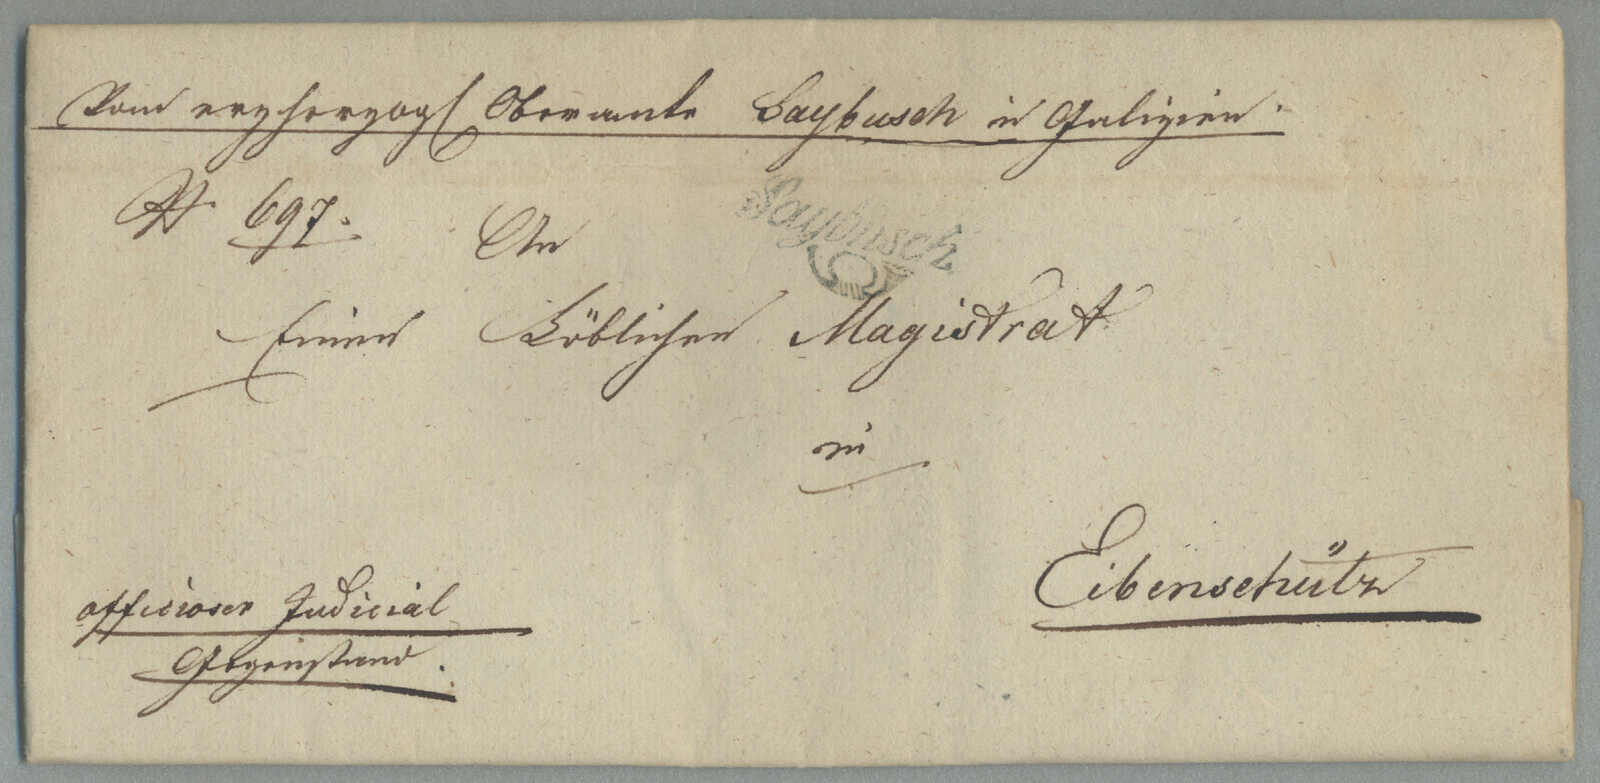 Vom erzherzogl Oberamte Saybusch in Galizien.
N 697.
An
Saybusch
Einen Löblichen Magistrat
in
Eibenschütz
officioser Judicial
Gegenstand.